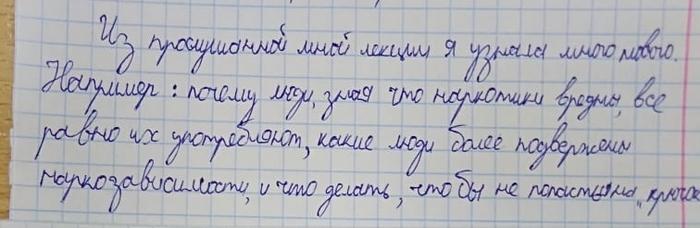 Из прослушанной мной лекции я узнала много нового.
Например: почему люди, зная что наркотики вредны, все
равно их употребляют, какие люди более подвержены
наркозависимости, и что делать, чтобы не попасться на „крючок